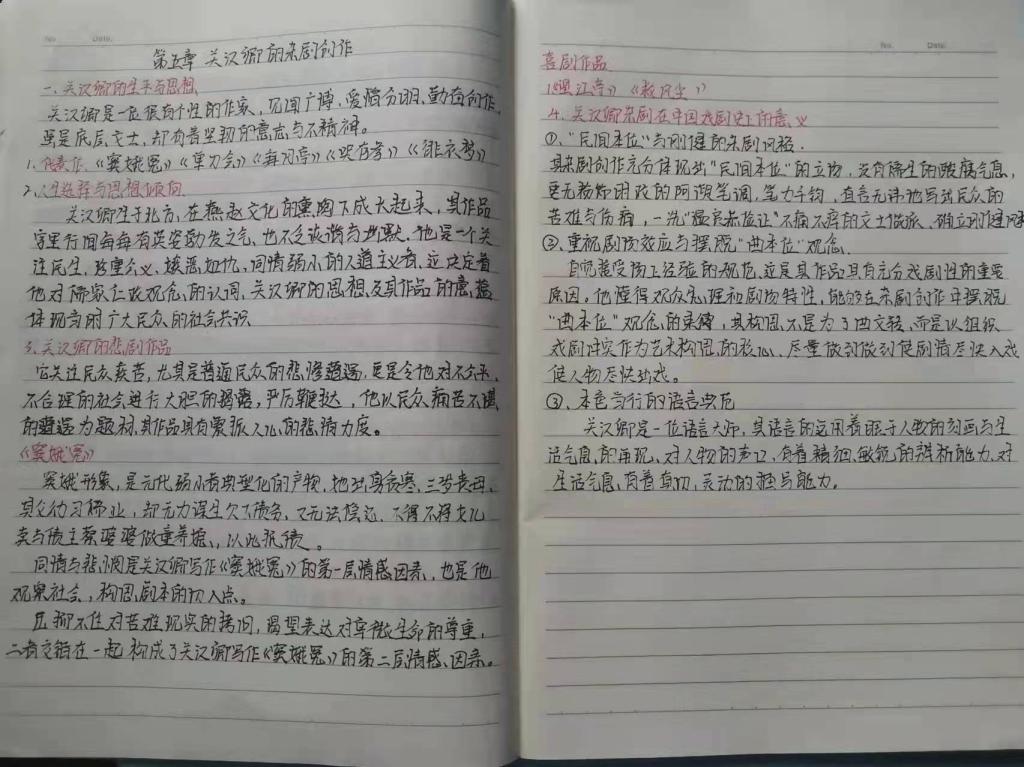 No. Date.
第五章 关汉卿的杂剧创作
一、关汉卿的生平与思想
关汉卿是一位很有个性的作家，见闻广博，爱憎分明，勤奋创作，
虽是底层文士，却有着坚韧的意志与不精神。
1、代表作，《窦娥冤》《单刀会》《拜月亭》《哭存孝》《绯衣梦》
2、人生选择与思想倾向
关汉卿生于北方，在燕赵文化的熏陶下成大起来，其作品
字里行间每每有英姿勃发之气，也不乏诙谐与幽默，他是一个关
注民生，珍重公义，嫉恶如仇，同情弱小的人道主义者，这决定着
他对儒家仁政观念，的认同，关汉卿的思想，及其作品的意蕴
体现当时广大民众的社会共识
3、关汉卿的悲剧作品
它关注民众疾苦，尤其是普通民众的悲惨遭遇，更是令他对不公平、
不合理的社会进行大胆的揭露，严厉鞭挞，他以民众痛苦不堪
的遭遇为题材，其作品具有震撼人心的悲情力度。
《窦娥冤》
窦娥形象，是元代弱小者典型化的产物，她出身贫寒，三岁丧母，
其父幼习儒业，却无力谋生欠下债务，又无法偿还，不得不将女儿
卖与债主蔡婆婆做童养媳，以此抵债。
同情与悲悯是关汉卿写作《窦娥冤》的第一层情感因素，也是他
观察社会，构思剧本的切入点。
压抑不住对苦难现实的拷问，渴望表达对卑微生命的尊重，
二者交错在一起构成了关汉卿写作《窦娥冤》的第二层情感因素。
No. Date.
喜剧作品
1《望江亭》《救风尘》
4、关汉卿杂剧在中国戏剧史上的意义
①、“民间本位”与刚健的杂剧风格.
其杂剧创作充分体现出“民间本位”的立场，没有儒生的酸腐气息，
更无粉饰时政的阿谀笔调，笔力千钧，直言无讳地写出民众的
苦难与伤痛，一洗“温良恭俭让”不痛不痒的文士做派、确立刚健风格
②、重视剧场效应与摆脱“曲本位”观念.
自觉接受场上经验的规范，这是其作品具有充分戏剧性的重要
原因。他懂得观众心理和剧场特性，能够在杂剧创作中摆脱
“曲本位”观念的束缚，其构思不是为了曲文转、而是以组织
戏剧冲突作为艺术构思的核心、尽量做到做到使剧情尽快入戏
使人物尽快出戏。
③、本色当行的语言典范
关汉卿是一位语言大师，其语言的运用着眼于人物的刻画与生
活气息，的再现、对人物的声口、有着精细、敏锐的辨析能力、对
生活气息、有着真切，灵动的描写能力.